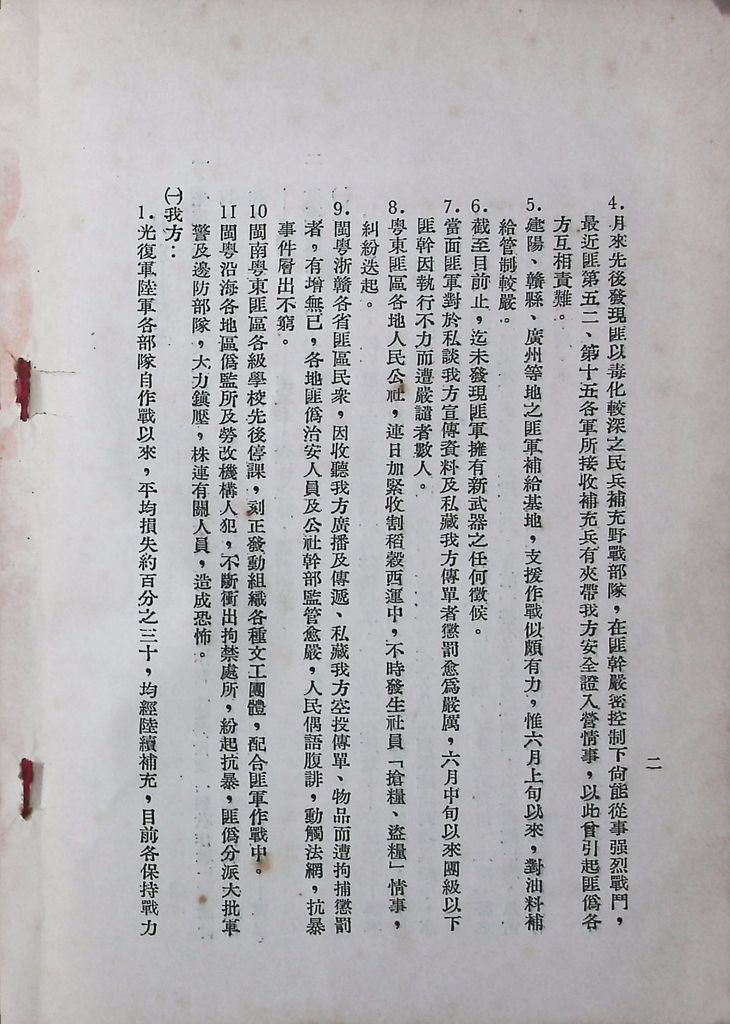 二
4.月來先後發現匪以毒化較深之民兵補充野戰部隊，在匪幹嚴密控制下尙能從事强烈戰鬥，
最近匪第五二、第十五各軍所接收補充兵有夾帶我方安全證入營情事，以此曾引起匪僞各
方互相責難。
5.建陽、贛縣、廣州等地之匪軍補給基地，支援作戰似頗有力，惟六月上旬以來，對油料補
給管制較嚴。
6.截至目前止，迄未發現匪軍擁有新武器之任何徵候。
7.當面匪軍對於私談我方宣傳資料及私藏我方傳單者懲罰愈爲嚴厲，六月中旬以來團級以下
匪幹因執行不力而遭嚴譴者數人。
8.粤東匪區各地人民公社，連日加緊收割稻穀西運中，不時發生社員「搶糧、盜糧」情事，
糾紛迭起。
9.閩粤浙贛各省匪區民衆，因收聽我方廣播及傳遞、私藏我方空投傳單、物品而遭拘捕懲罰
者，有增無已，各地匪僞治安人員及公社幹部監管愈嚴，人民偶語腹誹，動觸法網，抗暴
事件層出不窮。
10閩南粤東匪區各級學校先後停課，刻正發動組織各種文工團體，配合匪軍作戰中。
11閩粤沿海各地區僞監所及勞改機構人犯，不斷衝出拘禁處所，紛起抗暴，匪僞分派大批軍
警及邊防部隊，大力鎮壓，株連有關人員，造成恐怖。
㈠我方：
1.光復軍陸軍各部隊自作戰以來，平均損失約百分之三十，均經陸續補充，目前各保持戰力